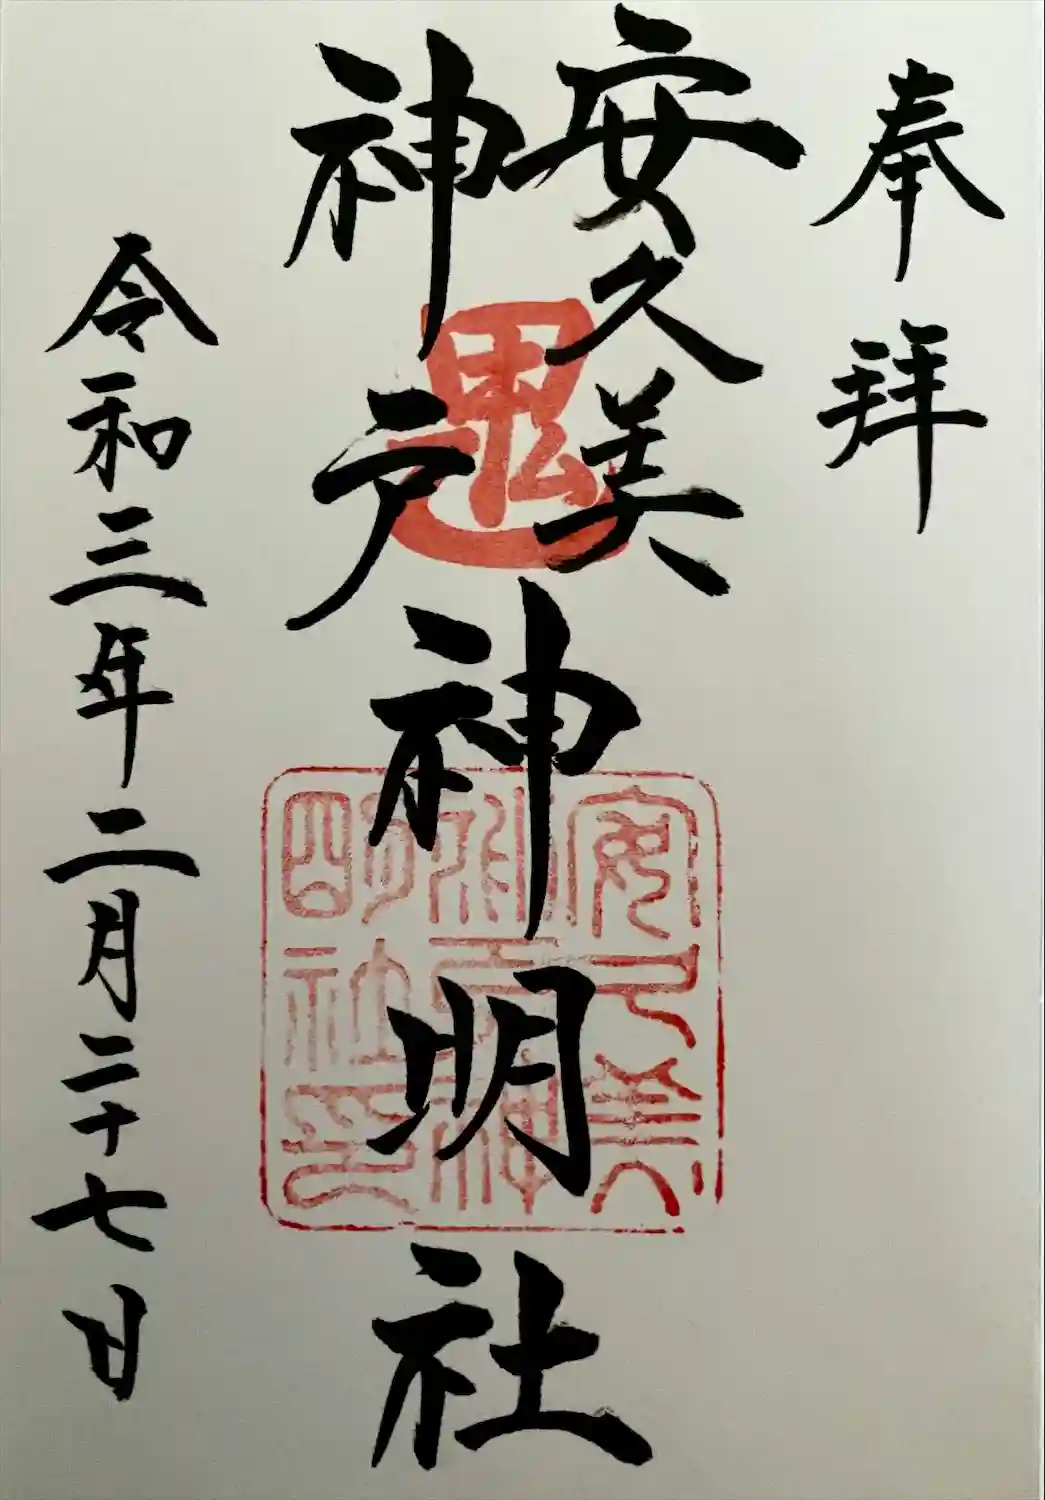 奉拝
安久美
神戸
神明社
鬼
安久美
神戸神
明社印
令和三年二月二十七日